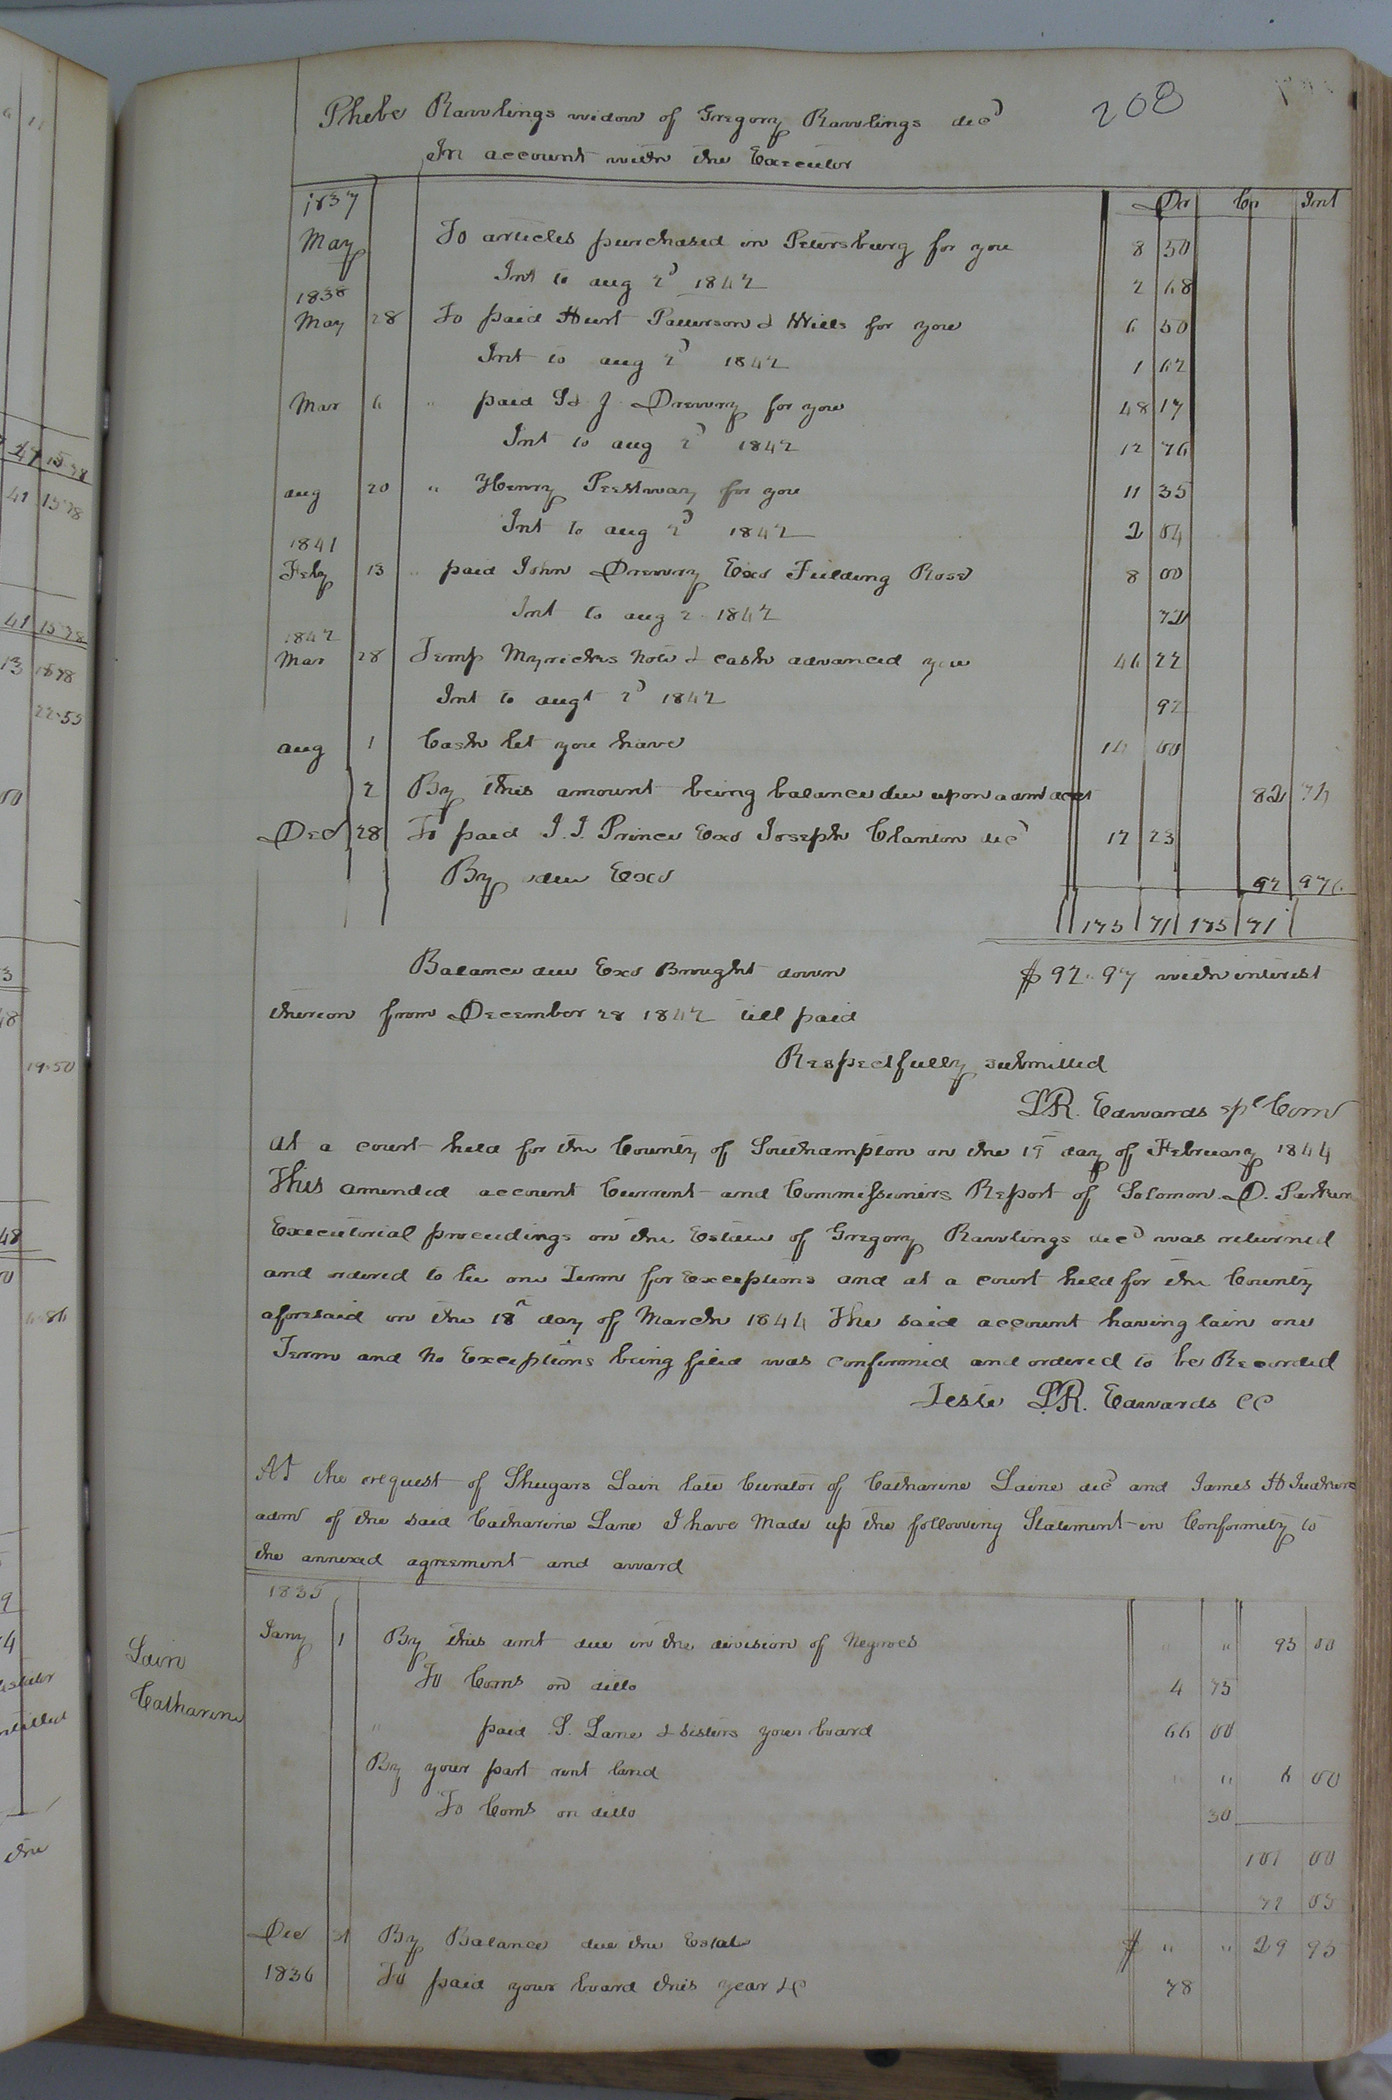 208
Phebe Rawlings widow of Gregory Rawlings decd
In account with the Executor
1837 Dr Cr Int
May To articles purchased in Petersburg for you 8 50
Int to aug 2d 1842 2 68
1838
May 28 To paid Hurt Patterson & Wills for you 6 50
Int to aug 2d 1842 1 62
Mar 6 " paid Sd J. Drewry for you 48 17
Int to aug 2d 1842 12 76
aug 20 " Henry Prestway for you 11 35
Int to aug 2d 1842 2 04
1841
Feby 13 " paid John Drewry Exor Fielding Rose 8 00
Int to aug 2 1842 72
1842
Mar 28 Temp Myricks note & cash advanced you 46 22
Int to augt 2d 1842 92
aug 1 Cash let you have 14 00
2 By this amount being balance due upon admt acct 82 74
Dec 28 To paid J. J. Prince Exor Joseph Clanton decd 12 23
By due Exor 92 97
175 71 175 71
Balance due Exor Brought down $92.97 with interest
thereon from December 28 1842 till paid
Respectfully submitted
L.R. Edwards spl Comr
At a court held for the County of Southampton on the 19th day of February 1844
This amended account Current and Commissioners Report of Solomon D. Parker
Executorial proceedings on the Estate of Gregory Rawlings decd was returned
and ordered to lie one Term for Exceptions and at a court held for the County
aforesaid on the 18th day of March 1844 The said account having lain one
Term and no Exceptions being filed was confirmed and ordered to be Recorded
Teste L.R. Edwards CC
At the request of Shugars Lain late Curator of Catharine Laine decd and James H
admr of the said Catharine Lane I have Made up the following Statement in Conformity to
the annexed agreement and award
1835
Lain
Catharine
Jany 1 By this amt due in the division of Negroes " " 95 00
To Coms on ditto 4 75
" paid S. Lane & sisters your board 66 00
By your part rent land " " 6 00
To Coms on ditto 30
101 00
71 05
Dec 31 By Balance due the Estate $ " " 29 95
1836 To paid your board this year &c 78